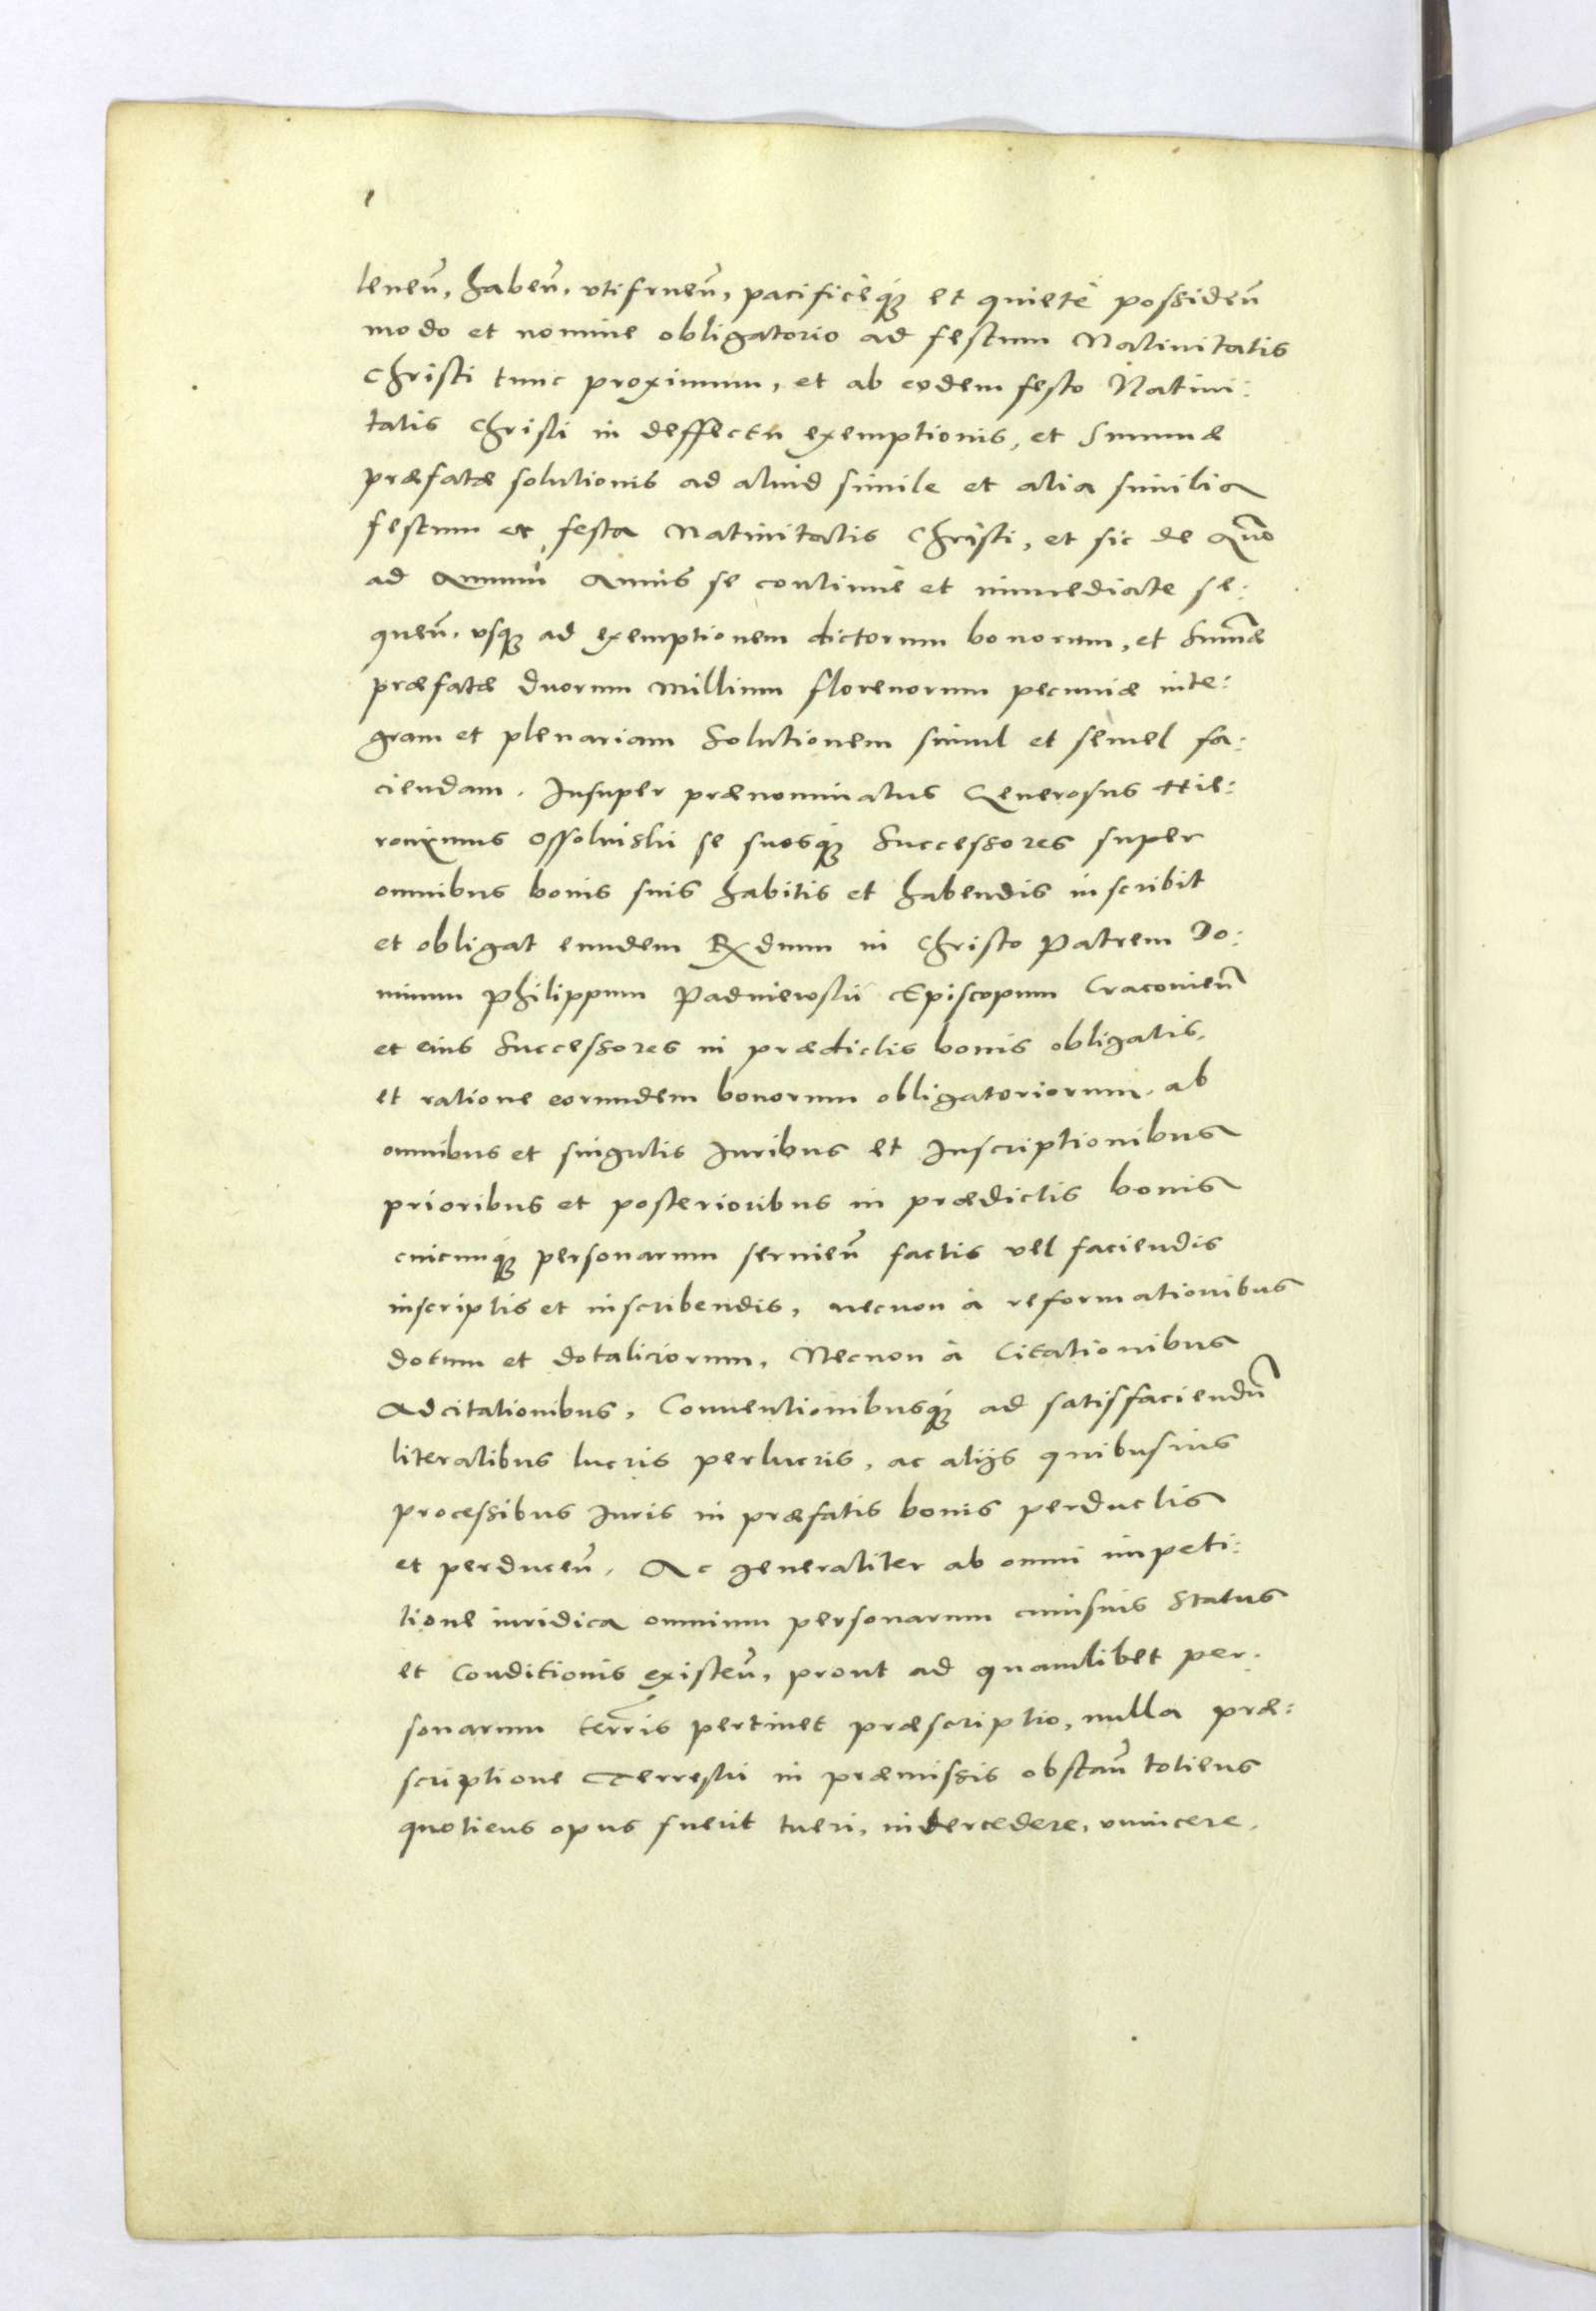 teneñ, habeñ, vtifrueñ, pacificèq́ꝫ et quietè possideñ
modo et nomine obligatorio ad festum Natiuitatis
Christi tunc proximum, et ab eodem festo Natiui:
tatis Christi in deffectu exemptionis, et Summæ
præfatæ solutionis ad aliud simile et alia similia
festum et festa Natiuitatis Christi, et sic de Añno
ad Annum Annis se continuè et immediate se:
queñ. vsqꝫ ad exemptionem dictorum bonorum, et Sum̃æ
præfatæ duorum Millium florenorum pecuniæ inte:
gram et plenariam Solutionem simul et semel fa:
ciendam. Insuper prænominatus Generosus Hie:
ronimus Ossolinskii se suosq́ꝫ Successores super
omnibus bonis suis habitis et habendis inscribit
et obligat eundem Rxdum in Christo Patrem Do:
minum Philippum Padniewskii Episcopum Cracouieñ
et eius Successores in prædictis bonis obligatis,
et ratione eorundem bonorum obligatoriorum. ab
omnibus et singulis Iuribus et Inscriptionibus
prioribus et posterioribus in prædictis bonis
cuicunq́ꝫ personarum seruieñ factis vel faciendis
inscriptis et inscribendis, necnon à reformationibus
dotum et dotaliciorum, Necnon à Citationibus
Adcitationibus, Conuentionibusq́ꝫ ad satisfaciendũ
literalibus lucris perlucris, ac alijs quibusuis
processibus Iuris in præfatis bonis perductis
et perduceñ. Ac generaliter ab omni impeti:
tione iuridica omnium personarum cuiusuis Status
et Conditionis existeñ, prout ad quamlibet per:
sonarum terrĩs pertinet præscriptio, nulla præ:
scriptione Terrestri in præmissis obstañ totiens
quotiens opus fuerit tueri, intercedere, euincere,